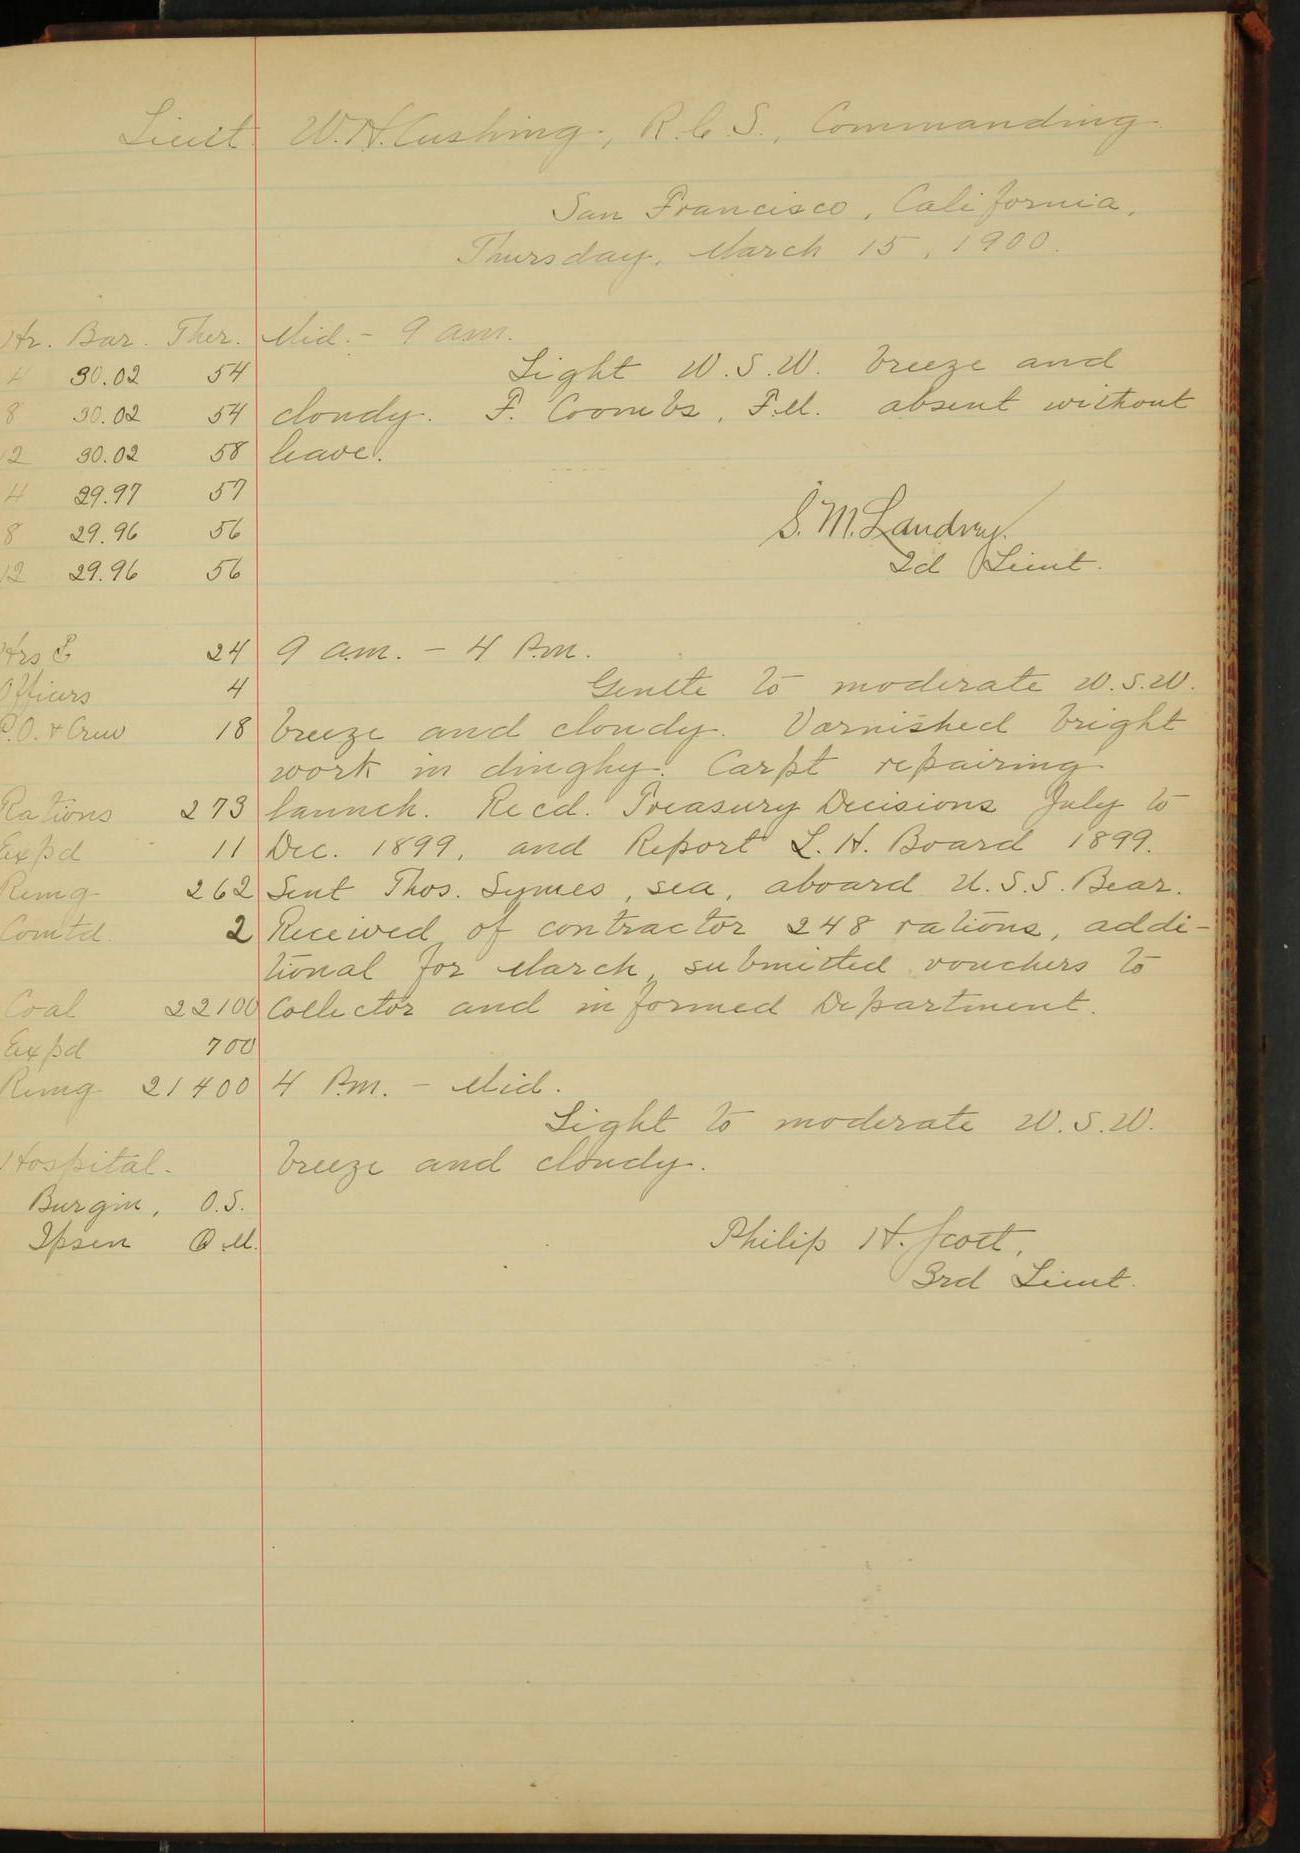 Lieut. W. H. Cushing, R. C. S., Commanding
San Francisco, California,
Thursday, March 15, 1900.
Hr. Bar. Ther. Mid. - 9 a.m.
4 30.02 54 Light W.S.W. breeze and
8 30.02 54 cloudy. F. Coombs, F.M. absent without
12 30.02 58 leave.
4 29.97 57
8 29.96 56 S. M. Landrey.
12 29.96 56 2d Lieut.
Hrs E 24 9 a.m. - 4 P.m.
Officers 4 Genlte to moderate W.S.W.
P.O. & Crew 18 breeze and cloudy. Varnished bright
work in dinghy. Carpt repairing
Rations 273 launch. Recd. Treasury Decisions July to
Expd 11 Dec. 1899, and Report L. H. Board 1899.
Remg 262 Sent Thos. Symes, sea, aboard U.S.S. Bear.
Comtd. 2 Received of contractor 248 rations, addi-
tional for March, submitted vouchers to
Coal 22100 Collector and informed Department.
Expd 700
Remg 21400 4 P.m. - Mid.
Light to moderate W.S.W.
Hospital. breeze and cloudy.
Burgin, O.S.
Ipsen Q.M. Philip H. Scott,
3rd Lieut.